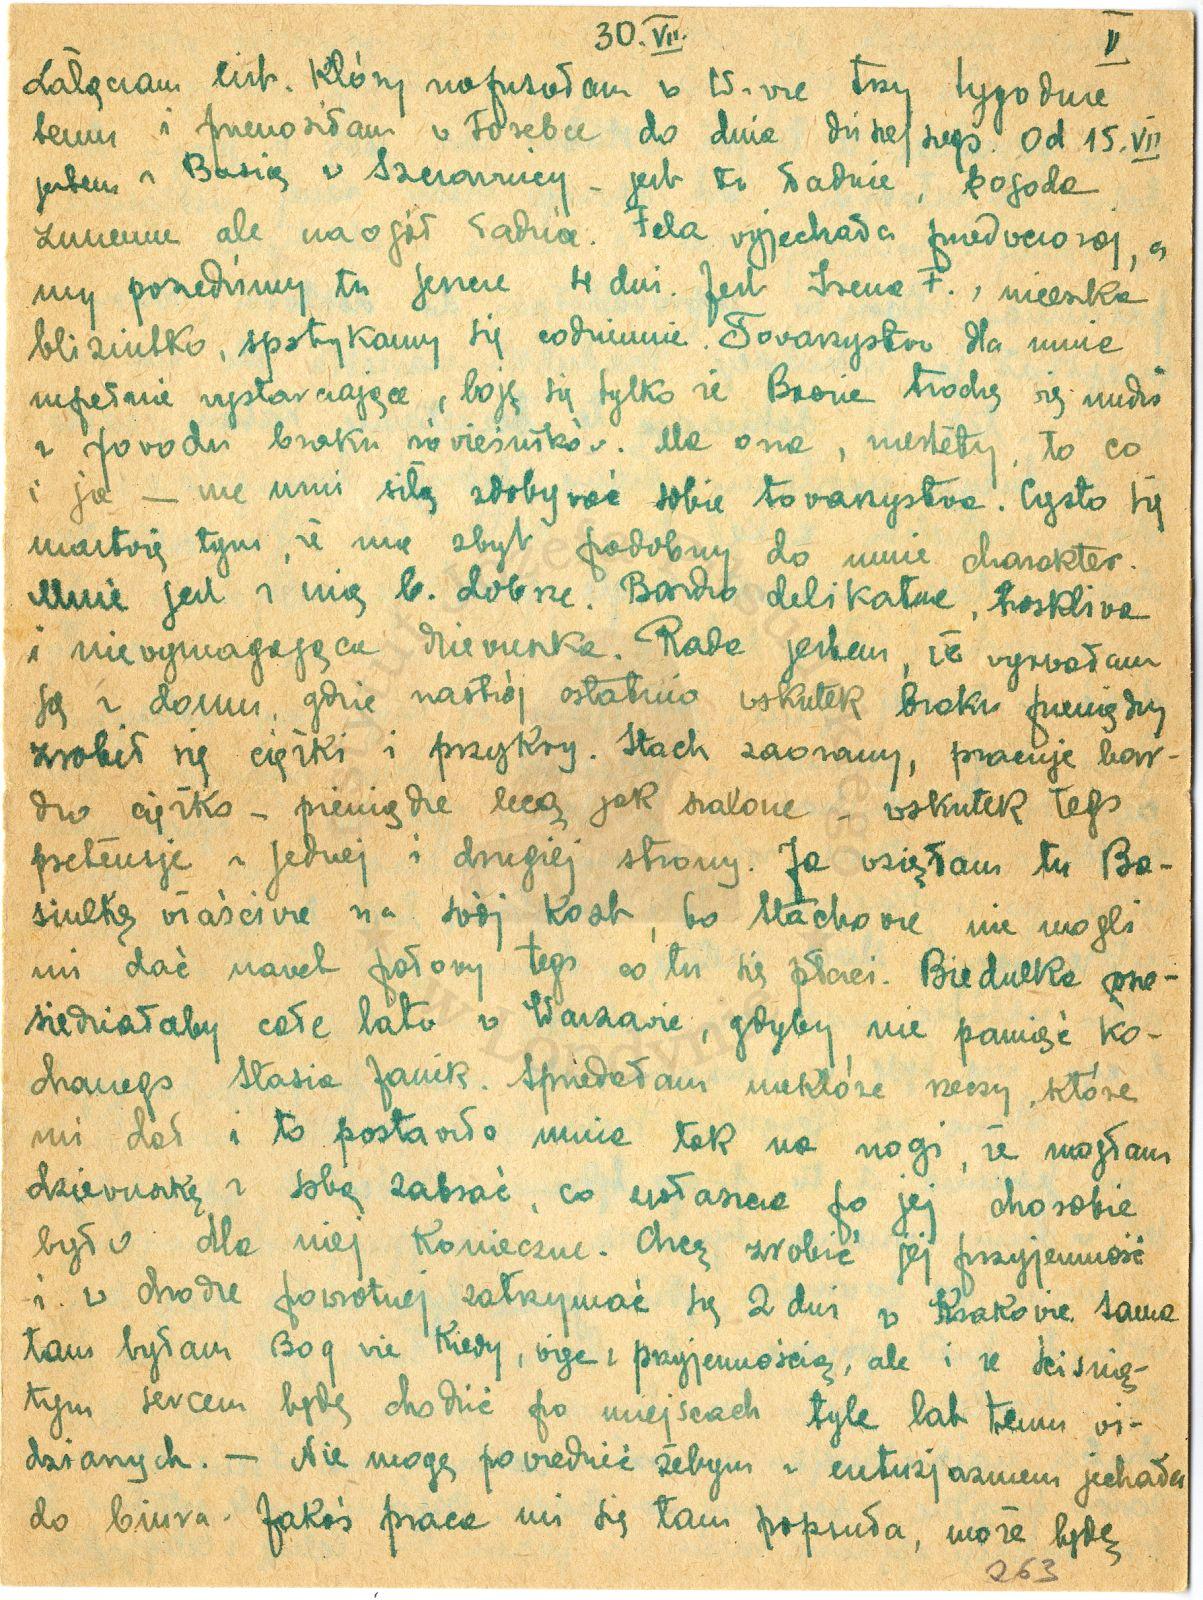 30.VII. II
Załączam list. który napisałam w W-wie trzy tygodnie
temu i przenosiłam w torebce do dnia dzisiejszego. Od 15.VII
jestem z Basią w Szczawnicy – jest tu ładnie, pogoda
zmienna ale naogół ładnie. Fela wyjechała przedwczoraj, a
my posiedzimy tu jeszcze 4 dni. Jest Irena F., mieszka
bliziutko, spotykamy się codziennie. Towarzystwo dla mnie
zupełnie wystarczające, boję się tylko że Basia trochę się nudzi
z powodu braku rówieśników. Ma ona, niestety, to co
i ja – nie umi siłą zdobywać sobie towarzystwa. Często się
martwię tym, że ma zbyt podobny do mnie charakter.
Mnie jest z nią b. dobrze. Bardzo delikatna, troskliwa
i niewymagająca dziewuszka. Rada jestem, że wyrwałam
ją z domu, gdzie nastrój ostatnio wskutek braku pieniędzy
zrobił się ciężki i przykry. Stach zaorany, pracuje bar-
dzo ciężko – pieniądze lecą jak szalone – wskutek tego
pretensje z jednej i drugiej strony. Ja wzięłam tu Ba-
siulkę właściwie na swój koszt, bo Stachowie nie mogli
mi dać nawet połowy tego co tu się płaci. Biedulka prze-
siedziałaby całe lato w Warszawie, gdyby nie pamięć ko-
chanego Stasia Janik. Sprzedałam niektóre rzeczy, które
mi dał i to postawiło mnie tak na nogi, że mogłam
dziewuszkę z sobą zabrać, co zwłaszcza po jej chorobie
było dla niej konieczne. Chcę zrobić jej przyjemność
i w drodze powrotnej zatrzymać się 2 dni w Krakowie. Sama
tam byłam Bóg wie kiedy, więc z przyjemnością, ale i ze ściśnię-
tym sercem będę chodzić po miejscach tyle lat temu wi-
dzianych. – Nie mogę powiedzieć żebym z entuzjazmem jechała
do biura. Jakoś praca mi się tam popsuła, może będę
263